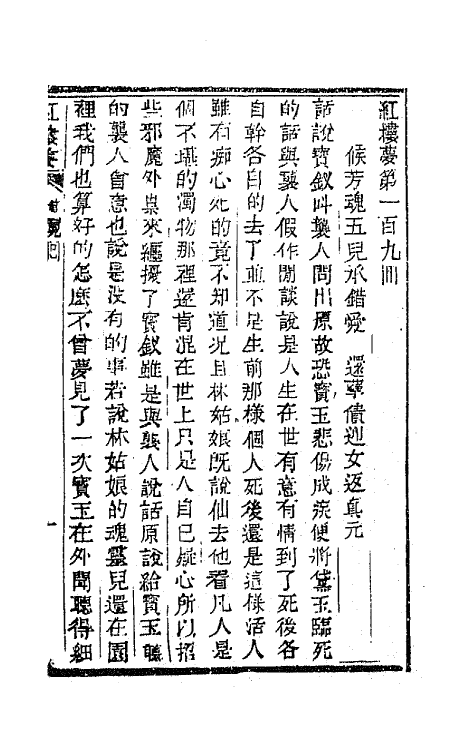 紅樓夢第一百九回
候芳魂五兒承錯愛　還孽債迎女返真元
話說寶釵叫襲人問出原故恐寶玉悲傷成疾便將黛玉臨死
的話與襲人假作閒談說是人生在世有意有情到了死後各
自幹各自的去了並不是生前那樣個人死後還是這樣活人
雖有痴心死的竟不知道况且林姑娘旣說仙去他看凡人是
個不堪的濁物那裡還肯混在世上只是人自己疑心所以招
些邪魔外祟來纏擾了寶釵雖是與襲人說話原說給寶玉聽
的襲人會意也說是沒有的事若說林姑娘的魂靈兒還在園
裡我們也算好的怎麼不曾夢見了一次寶玉在外聞聽得細
紅樓夢
一